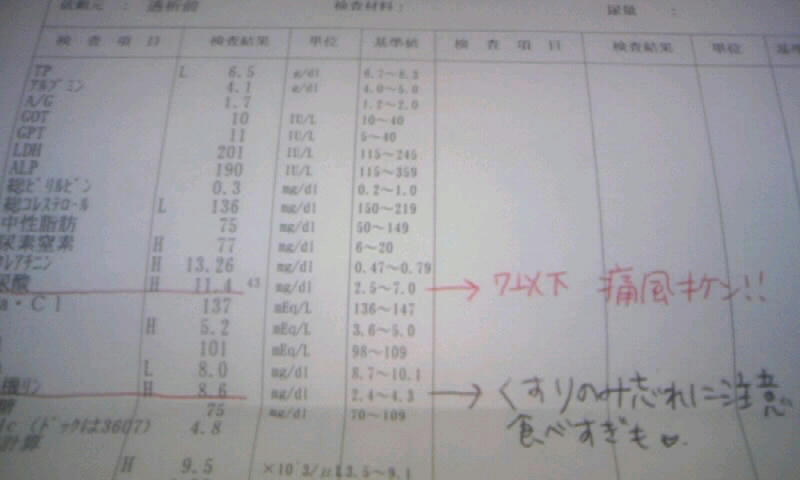 透析前 検査材料: 尿量 :
検査項目 検査結果 単位 基準値 検査項目 検査結果 単位
TP L 6.5 g/dl 6.7~8.3
アルブミン 4.1 g/dl 4.0~5.0
A/G 1.7 1.2~2.0
GOT 10 IU/L 10~40
GPT 11 IU/L 5~40
LDH 201 IU/L 115~245
ALP 190 IU/L 115~359
総ビリルビン 0.3 mg/dl 0.2~1.0
総コレステロール L 136 mg/dl 150~219
中性脂肪 75 mg/dl 50~149
尿素窒素 H 77 mg/dl 6~20
クレアチニン H 13.26 mg/dl 0.47~0.79
尿酸 H 11.4 43 mg/dl 2.5~7.0 → 7以下 痛風キケン!!
a・Cl 137 mEq/L 136~147
H 5.2 mEq/L 3.6~5.0
101 mEq/L 98~109
L 8.0 mg/dl 8.7~10.1
機リン H 8.6 mg/dl 2.4~4.3 → くすりのみ忘れに注意
糖 75 mg/dl 70~109 食べすぎも
1c (ドックは3607) 4.8
計算
H 9.5 ×10³/μl 3.5~9.1